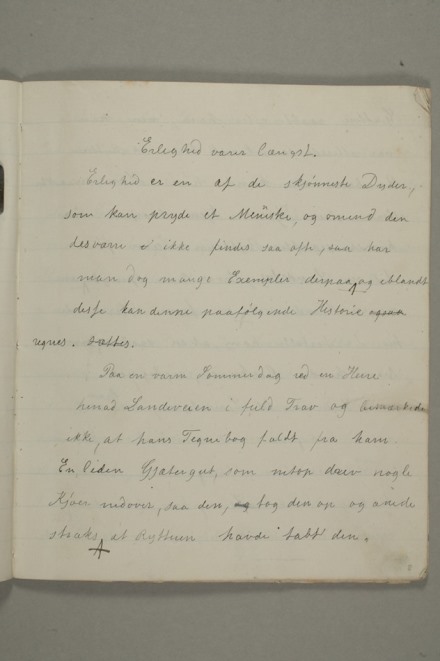 Erlighed varer længst.
Erlighed er en af de skjønneste Dyder,
som kan pryde et Meniske, og omend den
desværre ikke findes saa ofte, saa har
man dog mange Exempler derpaa, og iblandt
disse kan denne paafølgende Historie ogsaa
regnes. sættes.
Paa en varm Sommerdag red en Herre
henad Landeveien i fuld Trav og bemærkede
ikke, at hans Tegnebog faldt fra ham.
En liden Gjætergut, som netop drev nogle
Kjøer nedover, saa den, og tog den op og anede
straks, at Rytteren havde tabt den.